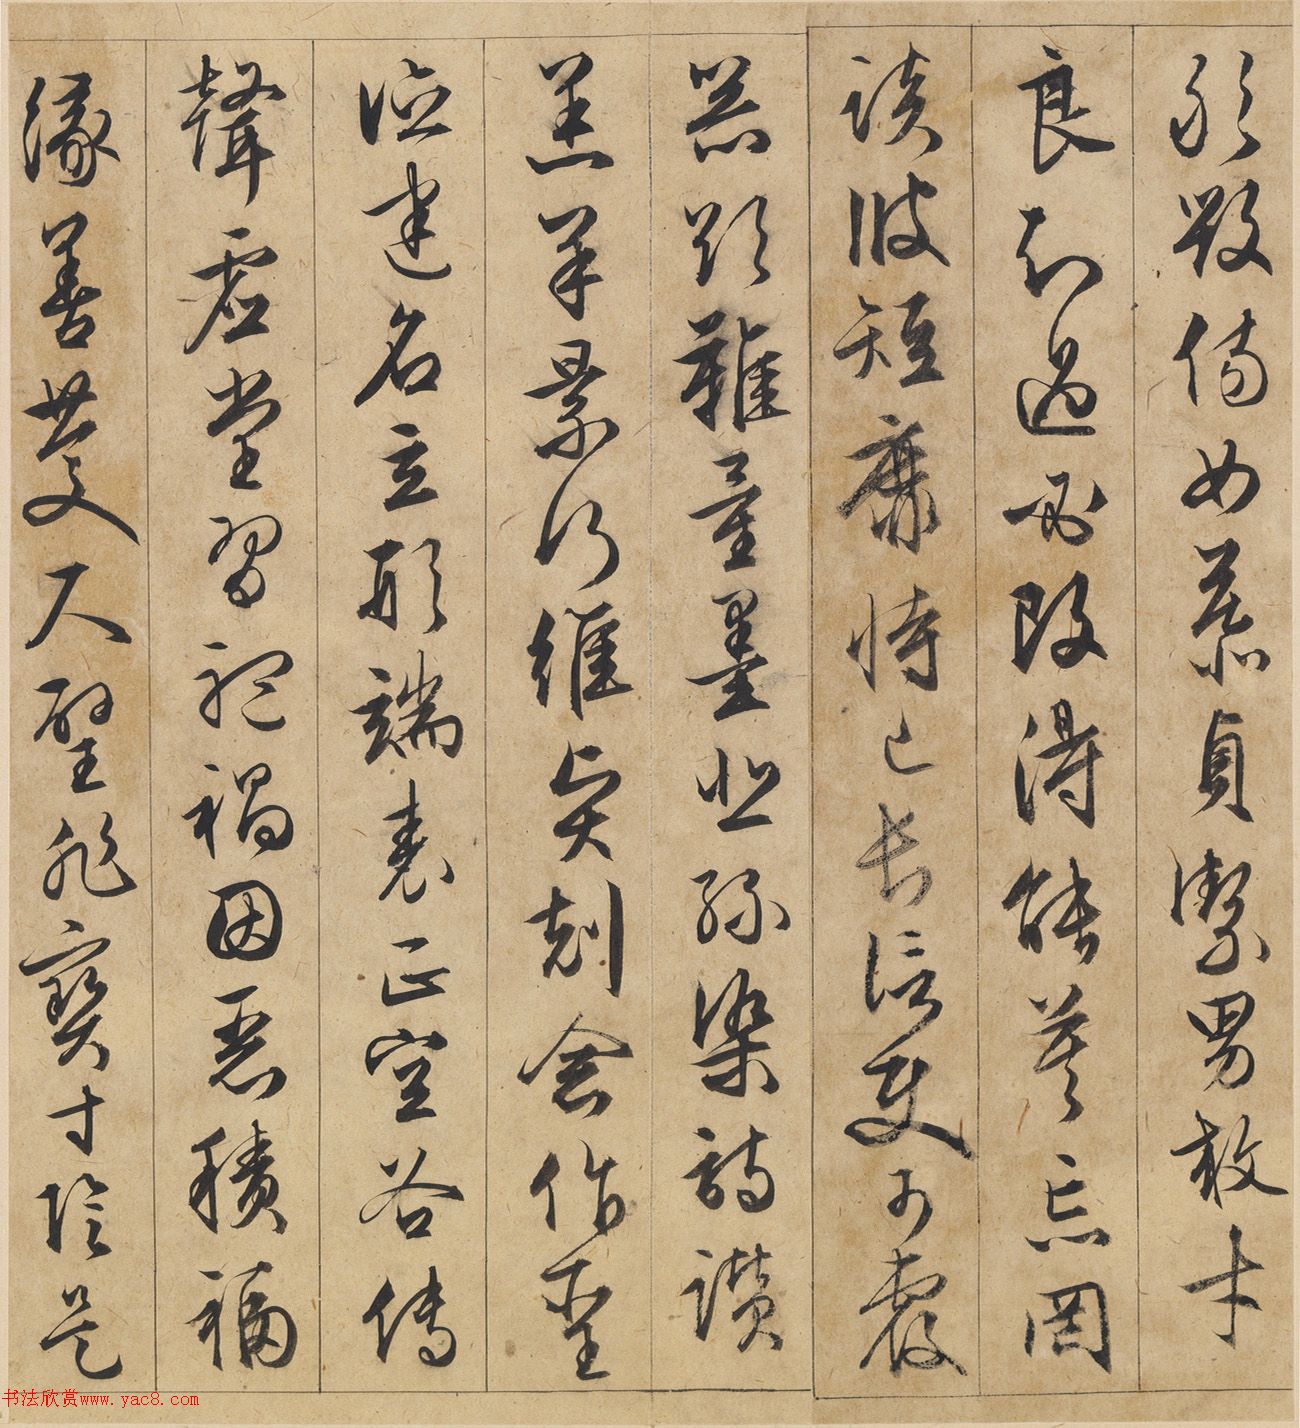 敢毀傷女慕貞潔男效才
良知過必改得能莫忘罔
談彼短靡恃己長信使可覆
器欲難量墨悲絲染詩讚
羔羊景行維賢剋念作聖
德建名立形端表正空谷傳
聲虛堂習聽禍因惡積福
緣善慶尺璧非寶寸陰是
书法欣赏www.yac8.com